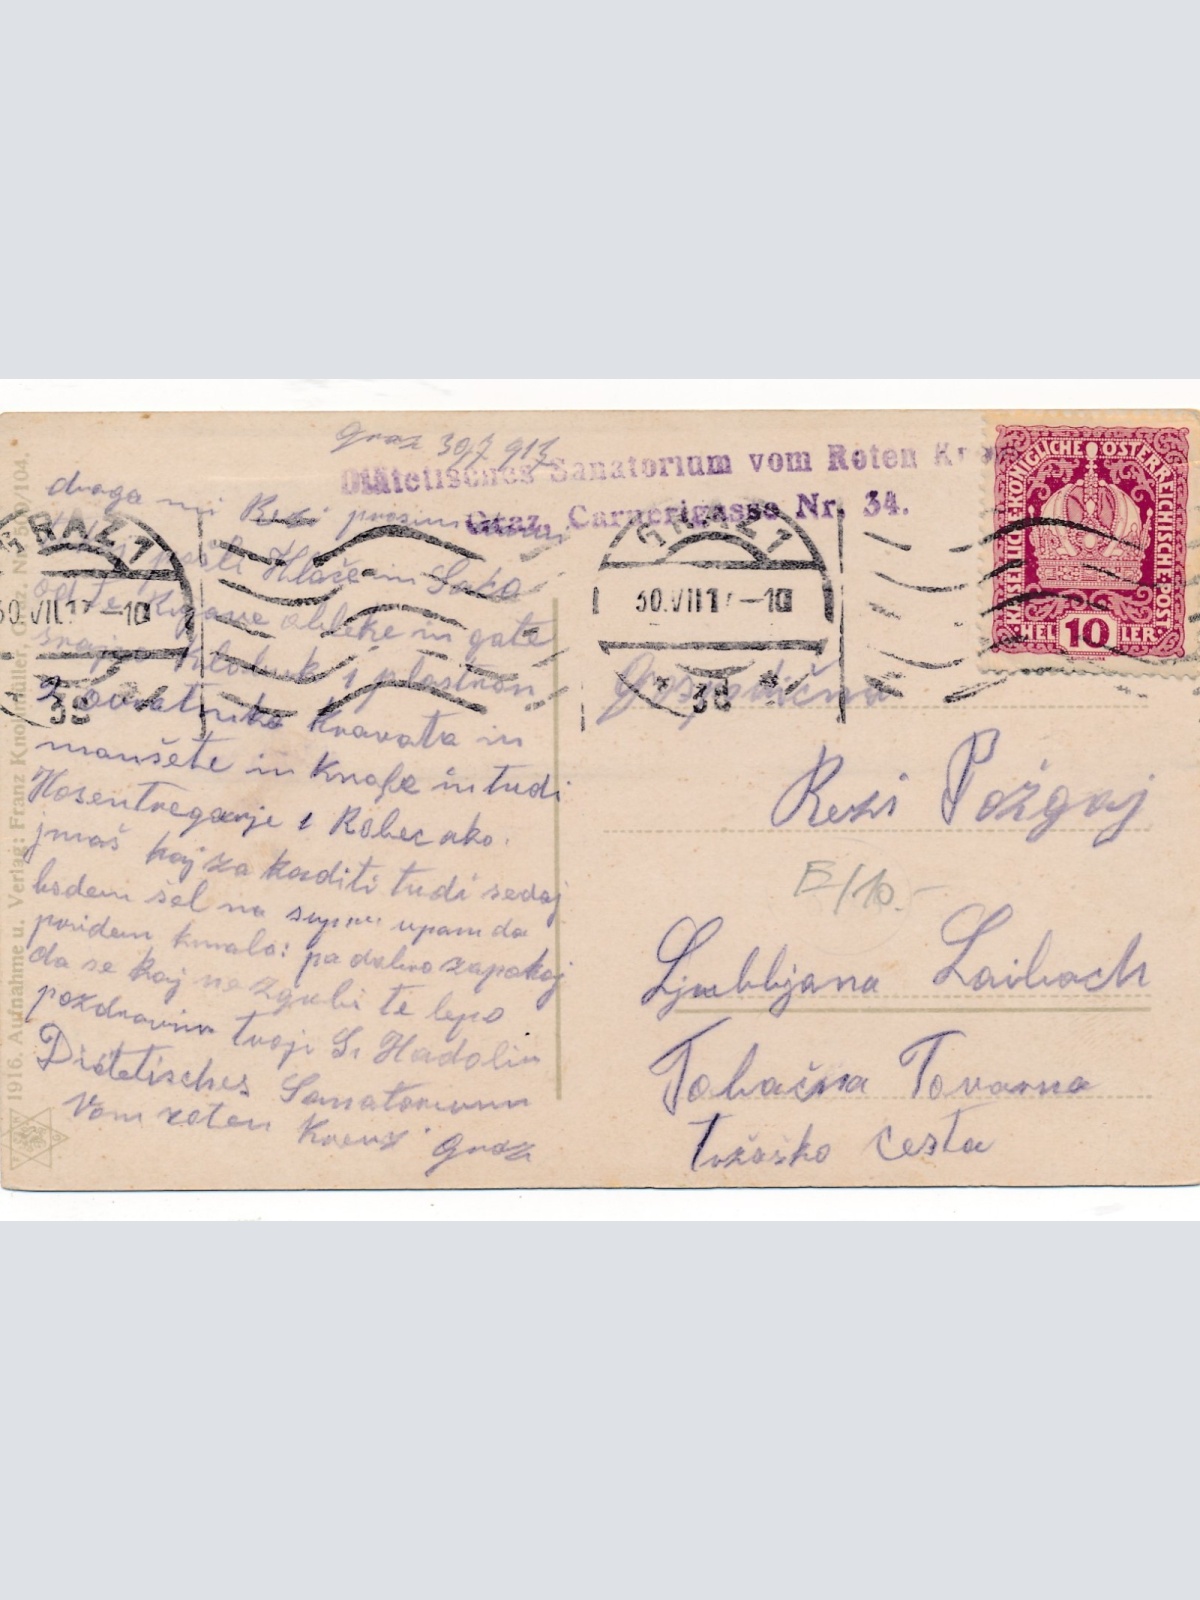 Graz 30/7 917
Diätetisches Sanatorium vom Roten
Graz, Carnerigasse Nr. 34.
draga mi Rezi prosim
pošli Hlače in
obleke in gate
Klobuk 1 plastron
2 ovratnika Kravata in
manšete in Knofe in tudi
Hosentregarje 1 Robec ako
jmaš kaj za kaditi tudi sedaj
bodem šel na upam da
pridem kmalo: pa dobro zapakaj
da se kaj ne zgubi te lepo
pozdravim tvoji Hadolin
Diätetisches Sanatorium
Vom roten Kreuz Graz
GRAZ 1
30.VII.17-10
38
GRAZ 1
30.VII.17-10
38
KAISERLICHE·KÖNIGLICHE ÖSTERREICHISCHE·POST
HEL 10 LER
Gospodična
Rezi Požgaj
E/10.-
Ljubljana Laibach
Tobačna Tovarna
Tržaška cesta
1916. Aufnahme u. Verlag: Franz Knollmüller, Graz. Nr. /104.